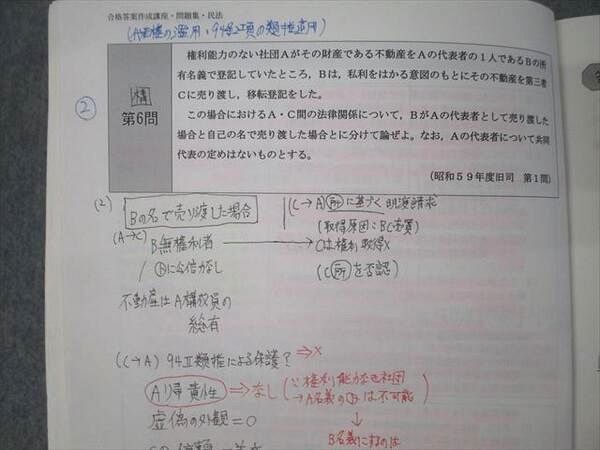 合格答案作成講座・問題集・民法
(代理権の濫用・94条2項の類推適用)
②
構
第6問
権利能力のない社団Aがその財産である不動産をAの代表者の1人であるBの所
有名義で登記していたところ，Bは，私利をはかる意図のもとにその不動産を第三者
Cに売り渡し，移転登記をした。
この場合におけるA・C間の法律関係について，BがAの代表者として売り渡した
場合と自己の名で売り渡した場合とに分けて論ぜよ。なお，Aの代表者について共同
代表の定めはないものとする。
(昭和59年度旧司 第1問)
(2) Bの名で売り渡した場合
(C→A) 所に基づく明渡請求
(取得原因：BC売買)
(A→C)
B無権利者 → Cは権利取得×
(C所を否認)
に公信力なし
不動産はA構成員の
総有
(C→A) 94Ⅱ類推による保護？ ⇒×
A帰責性 ⇒なし (∵権利能力なき社団
→A名義の登は不可能
虚偽の外観=0
↓
B名義にするのは